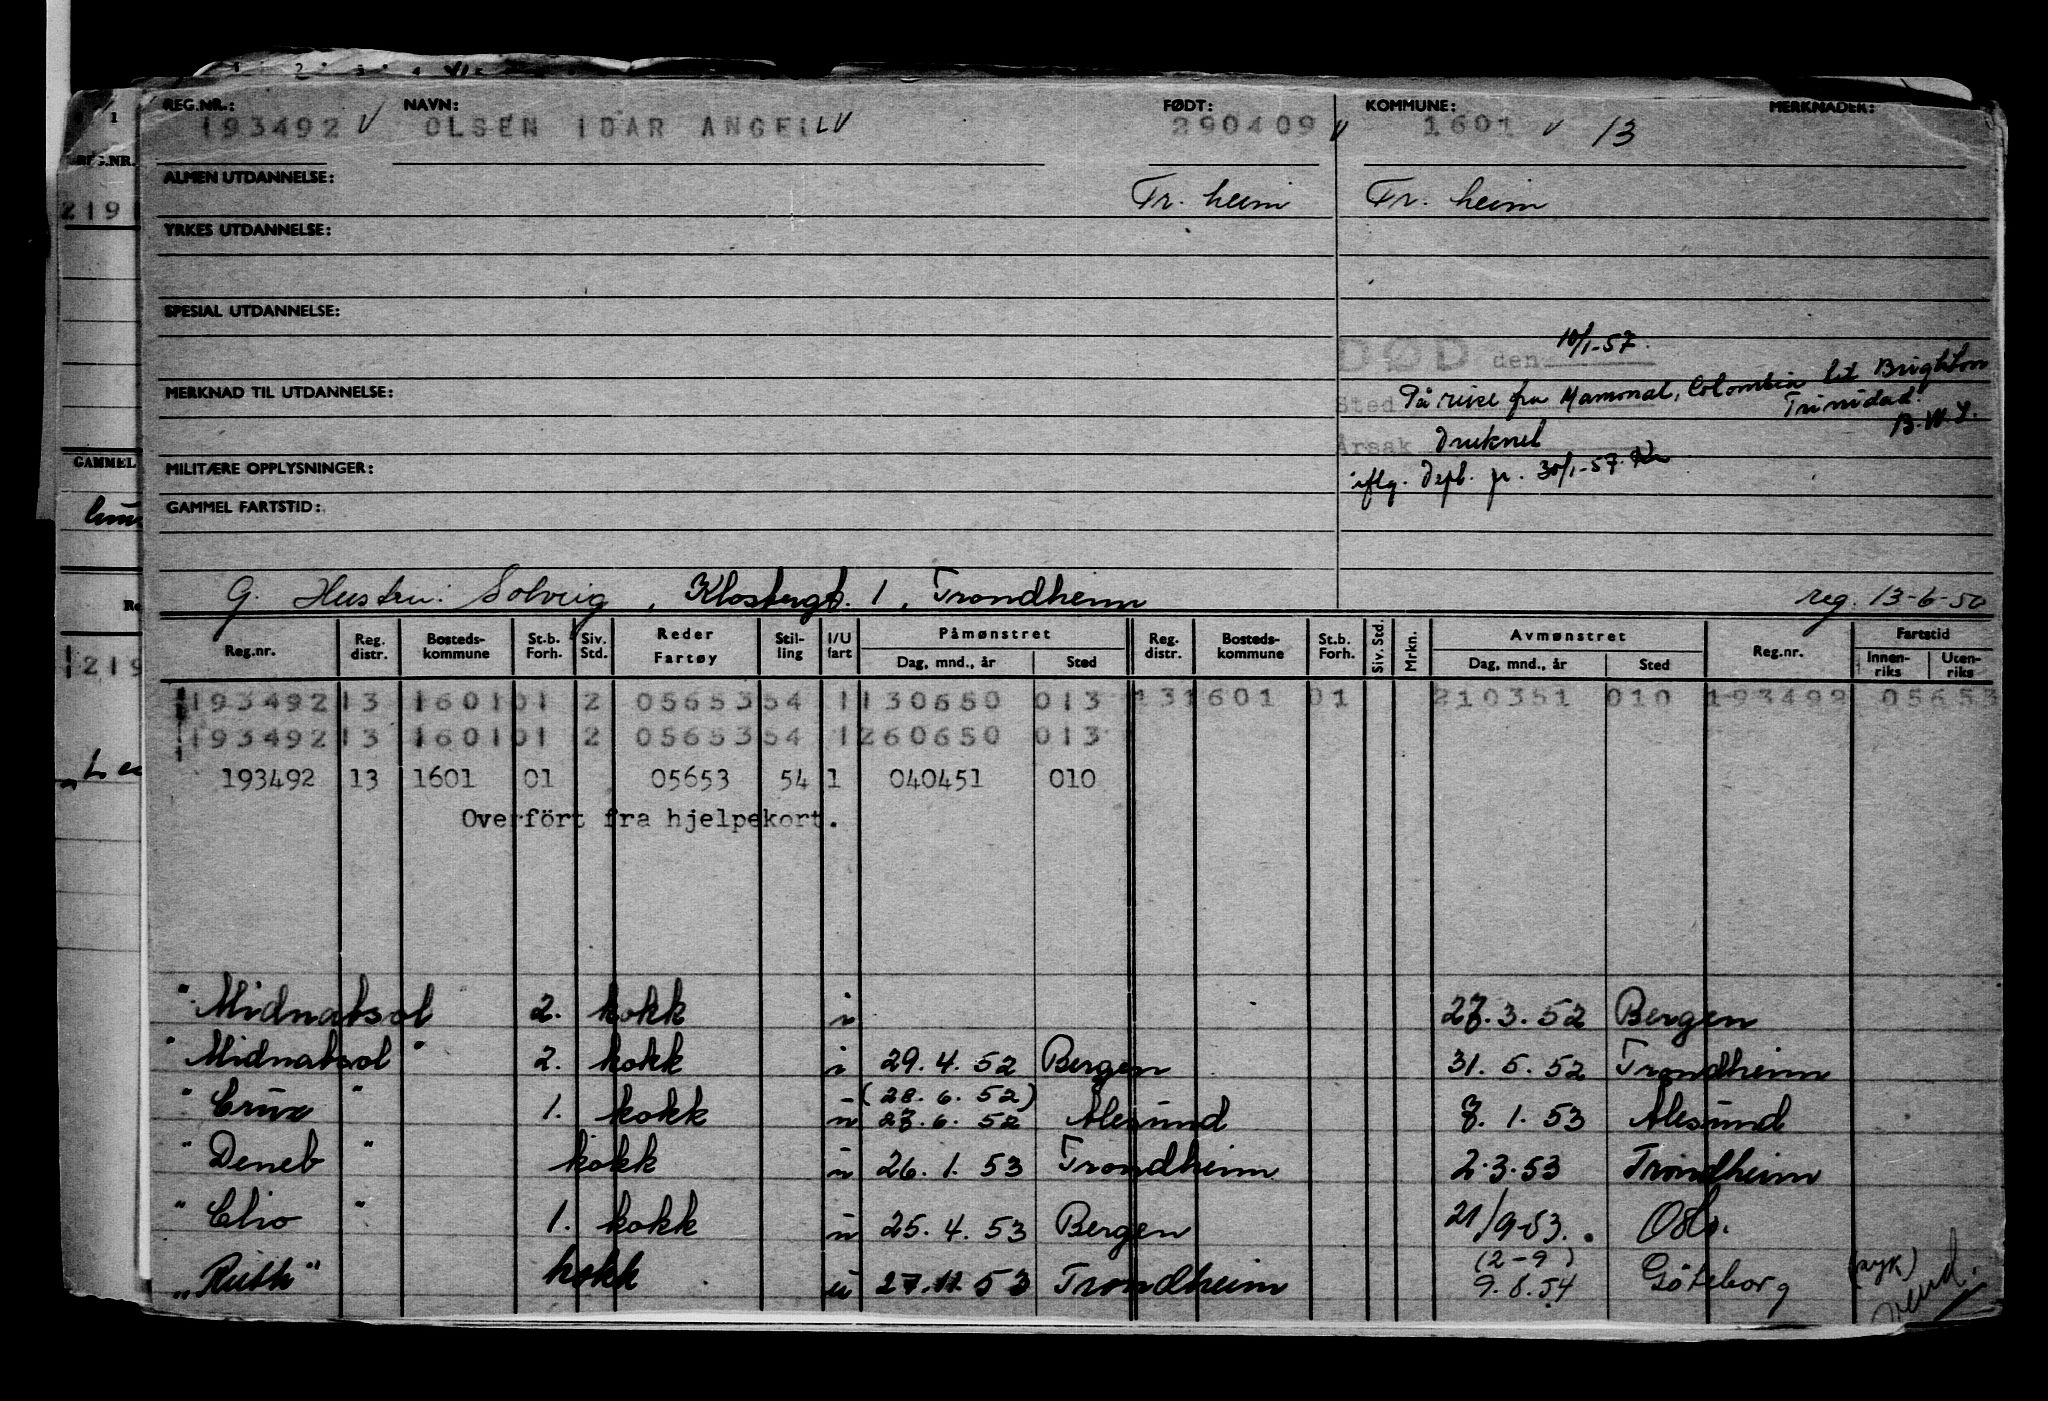 REG.NR.: NAVN: FØDT: KOMMUNE: MERKNADER:
193492 V OLSEN IDAR ANGELL V 290409 V 1601 V 13
ALMEN UTDANNELSE: Tr. heim Tr. heim
YRKES UTDANNELSE:
SPESIAL UTDANNELSE:
DØD den 10/1-57.
MERKNAD TIL UTDANNELSE:
Sted På reise fra Mamonal, Colombia til Brighton
Trinidad.
B.W.I.
Årsak Druknet
MILITÆRE OPPLYSNINGER:
iflg. Dept. 30/1-57.
GAMMEL FARTSTID:
G. Hustru: Solveig, Klosterg. 1, Trondheim reg. 13-6-50
Reg.nr. Reg. distr. Bosteds-kommune St.b. Forh. Siv. Std. Reder Fartøy Stil-ling I/U fart Påmønstret Dag, mnd., år Sted Reg. distr. Bosteds-kommune St.b. Forh. Siv. Std. Mrkn. Avmønstret Dag, mnd., år Sted Reg.nr. Fartstid Innen-riks Uten-riks
193492 13 1601 01 2 05653 54 1 130650 013 13 1601 01 210351 010 193492 05653
193492 13 1601 01 2 05653 54 1 260650 013
193492 13 1601 01 05653 54 1 040451 010
Overført fra hjelpekort.
"Midnatsol 2. kokk i 27.3.52 Bergen
"Midnatsol" 2. kokk i 29.4.52 Bergen 31.5.52 Trondheim
(28.6.52)
"Crux" 1. kokk u 27.6.52 Ålesund 7.1.53 Ålesund
"Deneb" kokk u 26.1.53 Trondheim 2.3.53 Trondheim
"Clio" 1. kokk u 25.4.53 Bergen 21/9-53. Oslo.
(2-9)
"Ruth" kokk u 27.11.53 Trondheim 9.8.54 Göteborg (syk)
vend.
1
REG.NR.
219
GAMMEL
Re
219